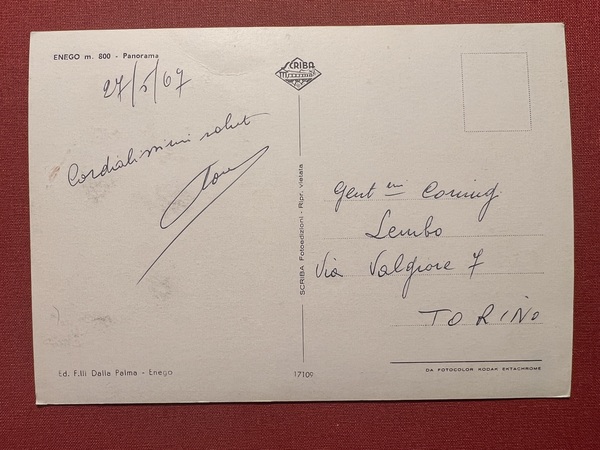 ENEGO m. 800 - Panorama
27/5/67
Cordialissimi saluti
SCRIBA
SCRIBA Fotoedizioni - Ripr. vietata
Gent.mi Coniug.
Lembo
Via Valgioie 7
TORINO
Ed. F.lli Dalla Palma - Enego
17109
DA FOTOCOLOR KODAK EKTACHROME